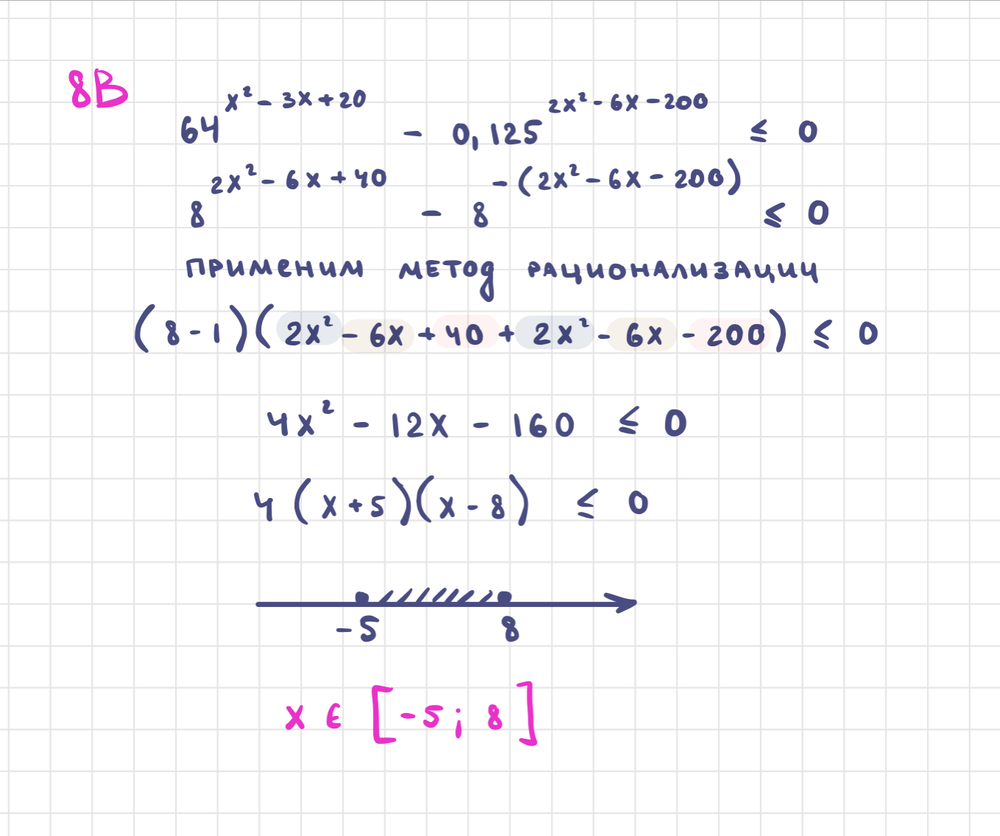 8В
64^(x² - 3x + 20) - 0,125^(2x² - 6x - 200) ≤ 0
8^(2x² - 6x + 40) - 8^(-(2x² - 6x - 200)) ≤ 0
применим метод рационализации
(8 - 1)(2x² - 6x + 40 + 2x² - 6x - 200) ≤ 0
4x² - 12x - 160 ≤ 0
4(x + 5)(x - 8) ≤ 0
-5 8
x ∈ [-5; 8]